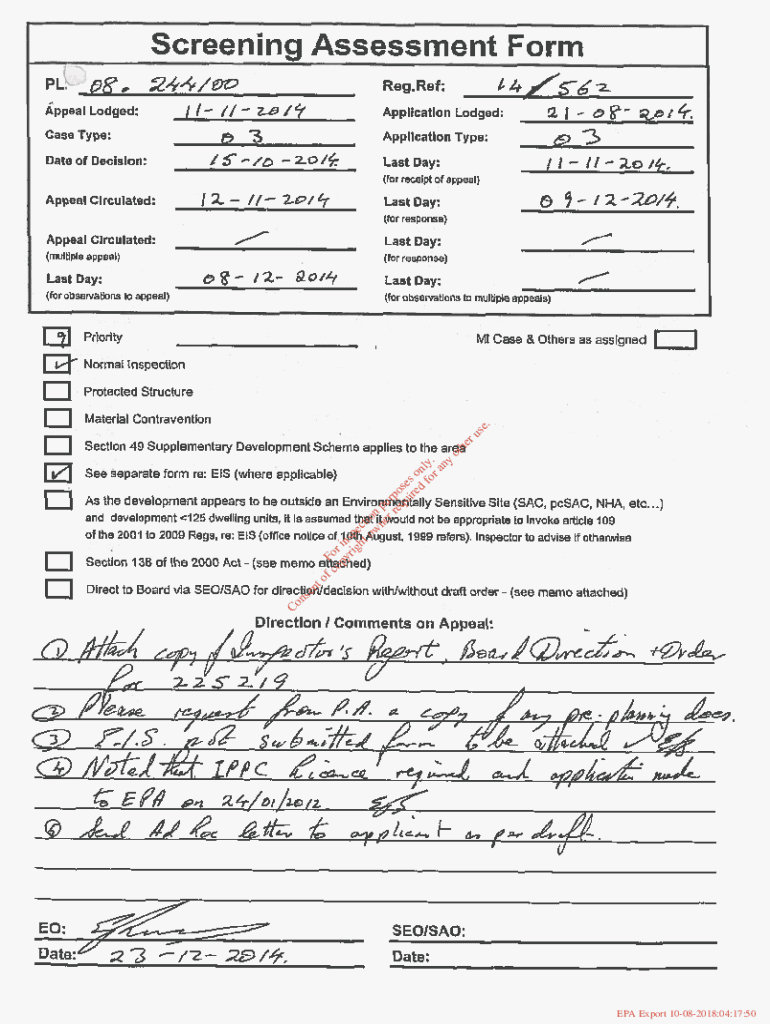 Screening Assessment Form
PL. 08. 244100 Reg.Ref: 14/562
Appeal Lodged: 11-11-2014 Application Lodged: 21-08-2014.
Case Type: 03 Application Type: 03
Date of Decision: 15-10-2014. Last Day: 11-11-2014.
(for receipt of appeal)
Appeal Circulated: 12-11-2014 Last Day: 09-12-2014.
(for response)
Appeal Circulated: / Last Day: /
(multiple appeal) (for response)
Last Day: 08-12-2014 Last Day: /
(for observations to appeal) (for observations to multiple appeals)
9 Priority MI Case & Others as assigned
✓ Normal Inspection
Protected Structure
Material Contravention
Section 49 Supplementary Development Scheme applies to the area
✓ See separate form re: EIS (where applicable)
As the development appears to be outside an Environmentally Sensitive Site (SAC, pcSAC, NHA, etc...)
and development <125 dwelling units, it is assumed that it would not be appropriate to invoke article 109
of the 2001 to 2009 Regs, re: EIS (office notice of 10th August, 1999 refers). Inspector to advise if otherwise
Section 138 of the 2000 Act - (see memo attached)
Direct to Board via SEO/SAO for direction/decision with/without draft order - (see memo attached)
For inspection purposes only.
Consent of copyright owner required for any other use.
Direction / Comments on Appeal:
① Attach copy of Inspector's Report, Board Direction + Order
for 225219
② Please request from P.A. a copy of any pre-planning docs.
③ E.I.S. not submitted form to be attached ✓
④ Noted that IPPC Licence required and application made
to EPA on 24/01/2012.
⑤ Send Ad hoc letter to applicant as per draft.
EO: SEO/SAO:
Date: 23-12-2014. Date:
EPA Export 10-08-2018:04:17:50